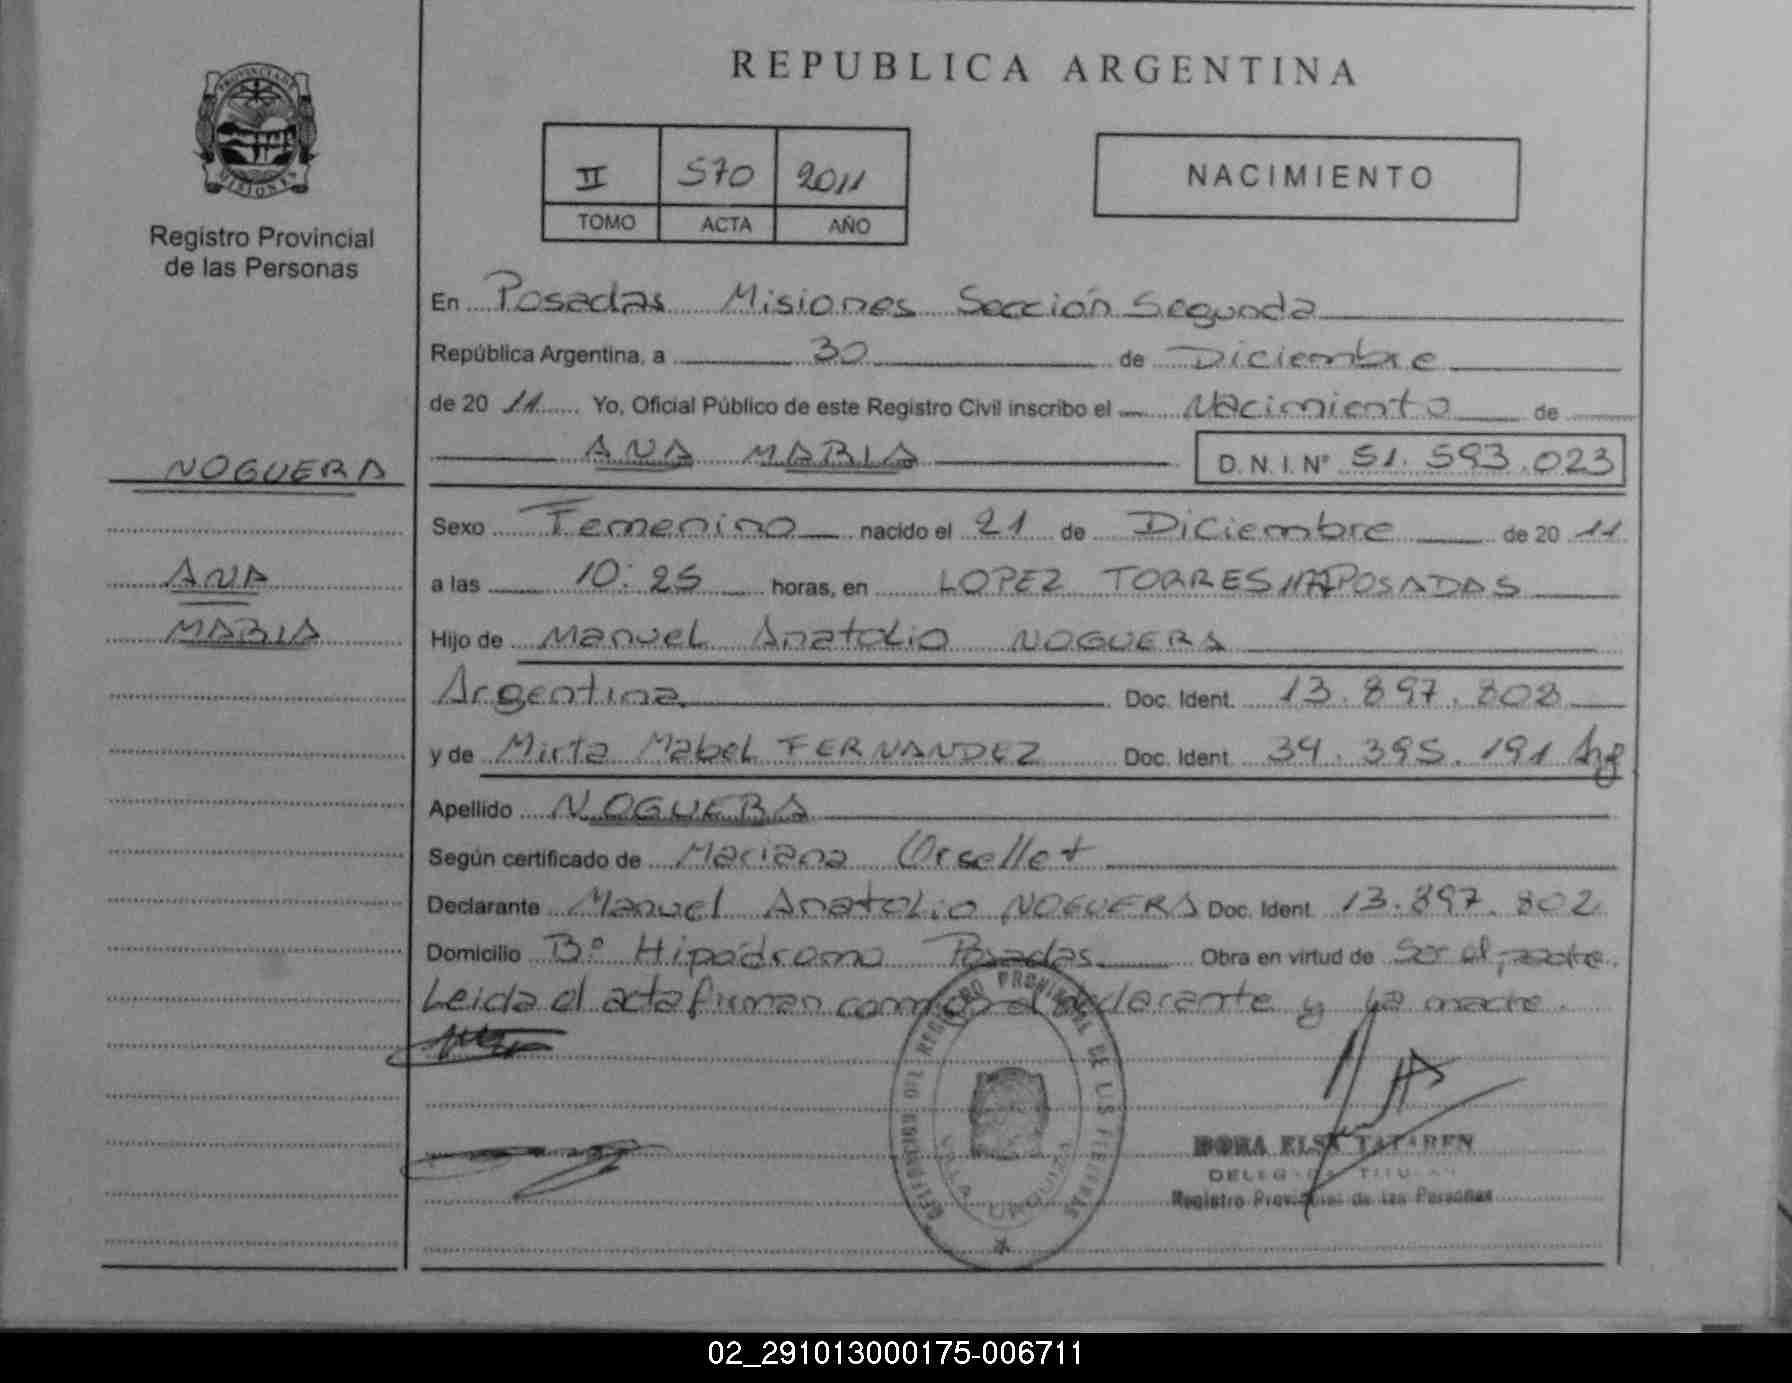 REPUBLICA ARGENTINA
PROVINCIA DE
MISIONES
Registro Provincial
de las Personas
II 570 2011
TOMO ACTA AÑO
NACIMIENTO
En Posadas Misiones Sección Segunda
República Argentina, a 30 de Diciembre
de 20 11 Yo, Oficial Público de este Registro Civil inscribo el Nacimiento de
ANA MARIA D.N.I. Nº 51.593.023
NOGUERA
Sexo Femenino nacido el 21 de Diciembre de 20 11
ANA
a las 10:25 horas, en LOPEZ TORRES 1177 POSADAS
MARIA
Hijo de Manuel Anatolio NOGUERA
Argentina Doc. Ident. 13.897.802
y de Mirta Mabel FERNANDEZ Doc. Ident. 34.395.191 Arg
Apellido NOGUERA
Según certificado de Mariana Orsellet
Declarante Manuel Anatolio NOGUERA Doc. Ident. 13.897.802
Domicilio Bº Hipódromo Posadas Obra en virtud de Ser el padre.
Leida el acta firman conmigo el declarante y la madre.
REGISTRO PROVINCIAL DE LAS PERSONAS
VILLA URQUIZA
ELSA
Registro Provincial de las Personas
02_291013000175-006711